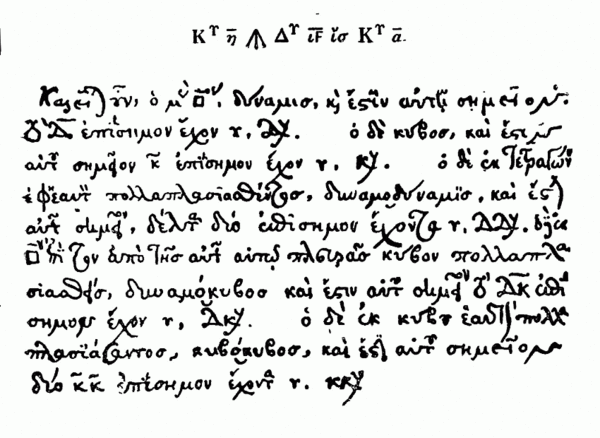 Κ^Υ η̄ ⩚ Δ^Υ ιϝ̄ ἴσ Κ^Υ ᾱ.
Καλεῖτ οὖν, ὁ μ̀ □ος, δύναμισ, κὶ ἔστιν αὐτῆσ σημεῖον
τὸ Δ̄ ἐπίσημον ἔχον υ, Δυ. ὁ δὲ κύβοσ, καὶ ἔστιν
αὐτ σημεῖον κ̄ ἐπίσημον ἔχον υ, κυ. ὁ δὲ ἐκ τετραγών
ἐφ ἑαυτ πολλαπλασιασθέντοσ, δυναμοδύναμισ, καὶ ἔστ
αὐτ σημεῖον, δέλτ δύο ἐπίσημον ἔχοντα υ, ΔΔυ. ὁ δὲ ἐκ
□ου τὸν ἀπὸ τῆσ αὐτ αὐτῶ πλευρᾶσ κύβον πολλαπλα
σιασθ, δυναμόκυβοσ καὶ ἔστιν αὐτ σημεῖον τὸ Δκ̄ ἐπί
σημον ἔχον υ, Δκυ. ὁ δὲ ἐκ κύβου ἑαυτὸν πολλα
πλασιάσαντοσ, κυβόκυβοσ, καὶ ἔστ αὐτ σημεῖον
δύο κ̄κ̄ ἐπίσημον ἔχοντα υ. κκυ